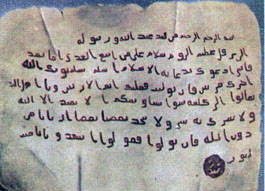 بسم الله الرحمن الرحيم من محمد عبد الله ورسوله
الى هرقل عظيم الروم سلام على من اتبع الهدى اما بعد
فانى ادعوك بدعاية الاسلام اسلم تسلم يوتك الله
اجرك مرتين فان توليت فعليك اثم
تعالوا الى كلمة سوا بيننا وبينكم الا نعبد الا الله
ولا نشرك به شيا ولا يتخذ بعضنا بعضا اربابا من
دون الله فان تولوا فقولوا اشهدوا بانا